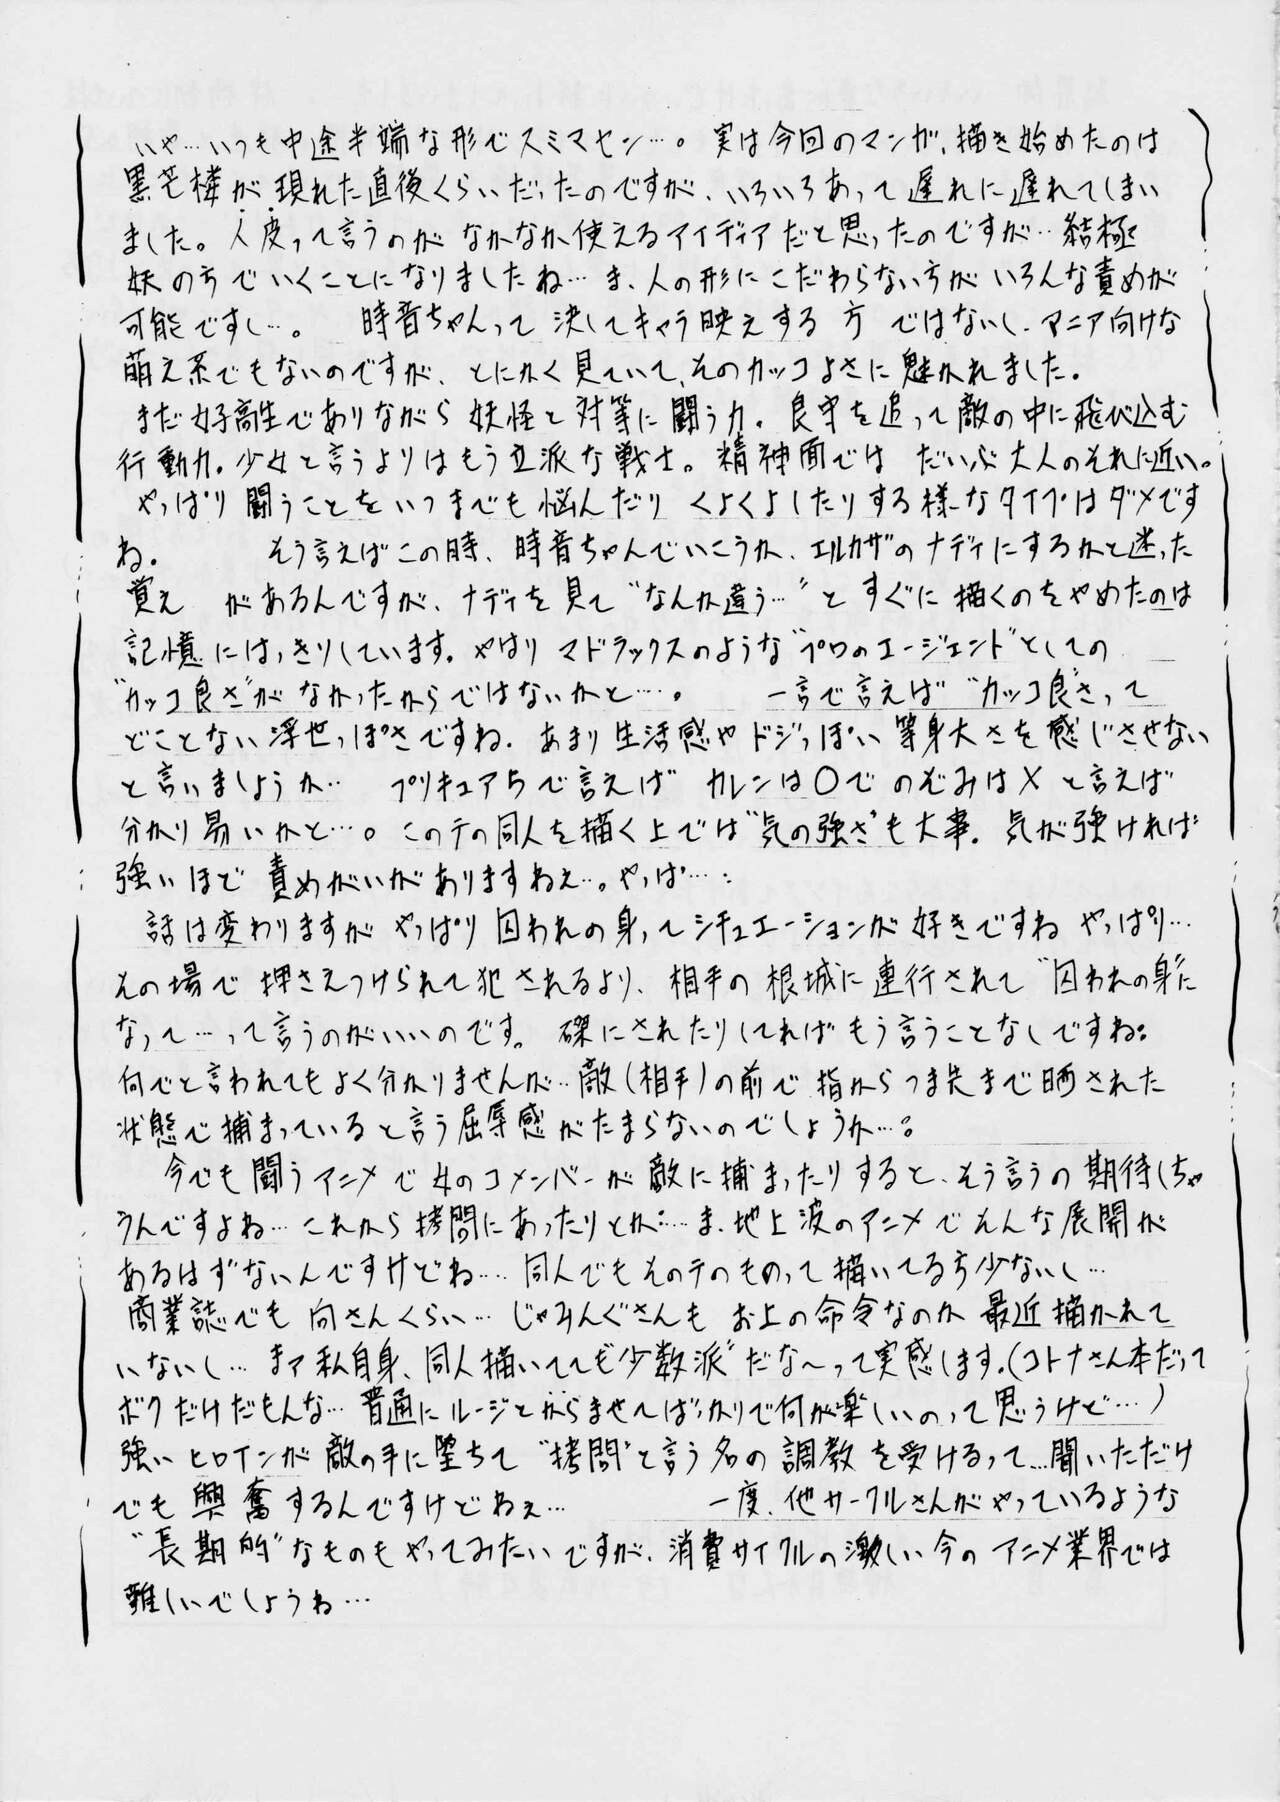 いや…いつも中途半端な形でスミマセン…。実は今回のマンガ、描き始めたのは
黒芒楼が現れた直後くらいだったのですが、いろいろあって遅れに遅れてしまい
ました。人皮って言うのがなかなか使えるアイディアだと思ったのですが…結極
妖の方でいくことになりましたね…ま、人の形にこだわらない方がいろんな責めが
可能ですし…。 時音ちゃんって決してキャラ映えする方ではないし、マニア向けな
萌え系でもないのですが、とにかく見ていて、そのカッコよさに魅かれました。
まだ女子高生でありながら妖怪と対等に闘う力。良守を追って敵の中に飛び込む
行動力。少女と言うよりはもう立派な戦士。精神面ではだいぶ大人のそれに近い。
やっぱり闘うことをいつまでも悩んだりくよくよしたりする様なタイプはダメです
ね。 そう言えばこの時、時音ちゃんでいこうか、エルカザのナディにするかと迷った
覚えがあるんですが、ナディを見て“なんか違う…”とすぐに描くのをやめたのは
記憶にはっきりしています。やはりマドラックスのような“プロのエージェント”としての
“カッコ良さ”がなかったからではないかと…。 一言で言えば“カッコ良”さって
どことない浮世っぽさですね。あまり生活感やドジっぽい等身大さを感じさせない
と言いましょうか… プリキュア5で言えばカレンは○でのぞみは×と言えば
分かり易いかと…。このテの同人を描く上では“気の強さ”も大事。気が強ければ
強いほど責めがいがありますねぇ…。やっぱ…:
話は変わりますがやっぱり囚われの身ってシチュエーションが好きですねやっぱり…
その場で押さえつけられて犯されるより、相手の根城に連行されて“囚われの身”に
なって…って言うのがいいのです。磔にされたりしてればもう言うことなしですね。
何でと言われてもよく分かりませんが…敵(相手)の前で指からつま先まで晒された
状態で捕まっていると言う屈辱感がたまらないのでしょうか…。
今でも闘うアニメで女のコメンバーが敵に捕まったりすると、そう言うの期待しちゃ
うんですよね…これから拷問にあったりとか…ま、地上波のアニメでそんな展開が
あるはずないんですけどね…。同人でもそのテのものって描いてる方少ないし…
商業誌でも向さんくらい…じゃみんぐさんもお上の命令なのか最近描かれて
いないし…まァ私自身、同人描いてても“少数派”だな〜って実感します。(コトナさん本だって
ボクだけだもんな…普通にルージとからませてばっかりで何が楽しいのって思うけど…)
強いヒロインが敵の手に堕ちて“拷問”と言う名の調教を受けるって…聞いただけ
でも興奮するんですけどねぇ… 一度、他サークルさんがやっているような
“長期的”なものもやってみたいですが、消費サイクルの激しい今のアニメ業界では
難しいでしょうね…